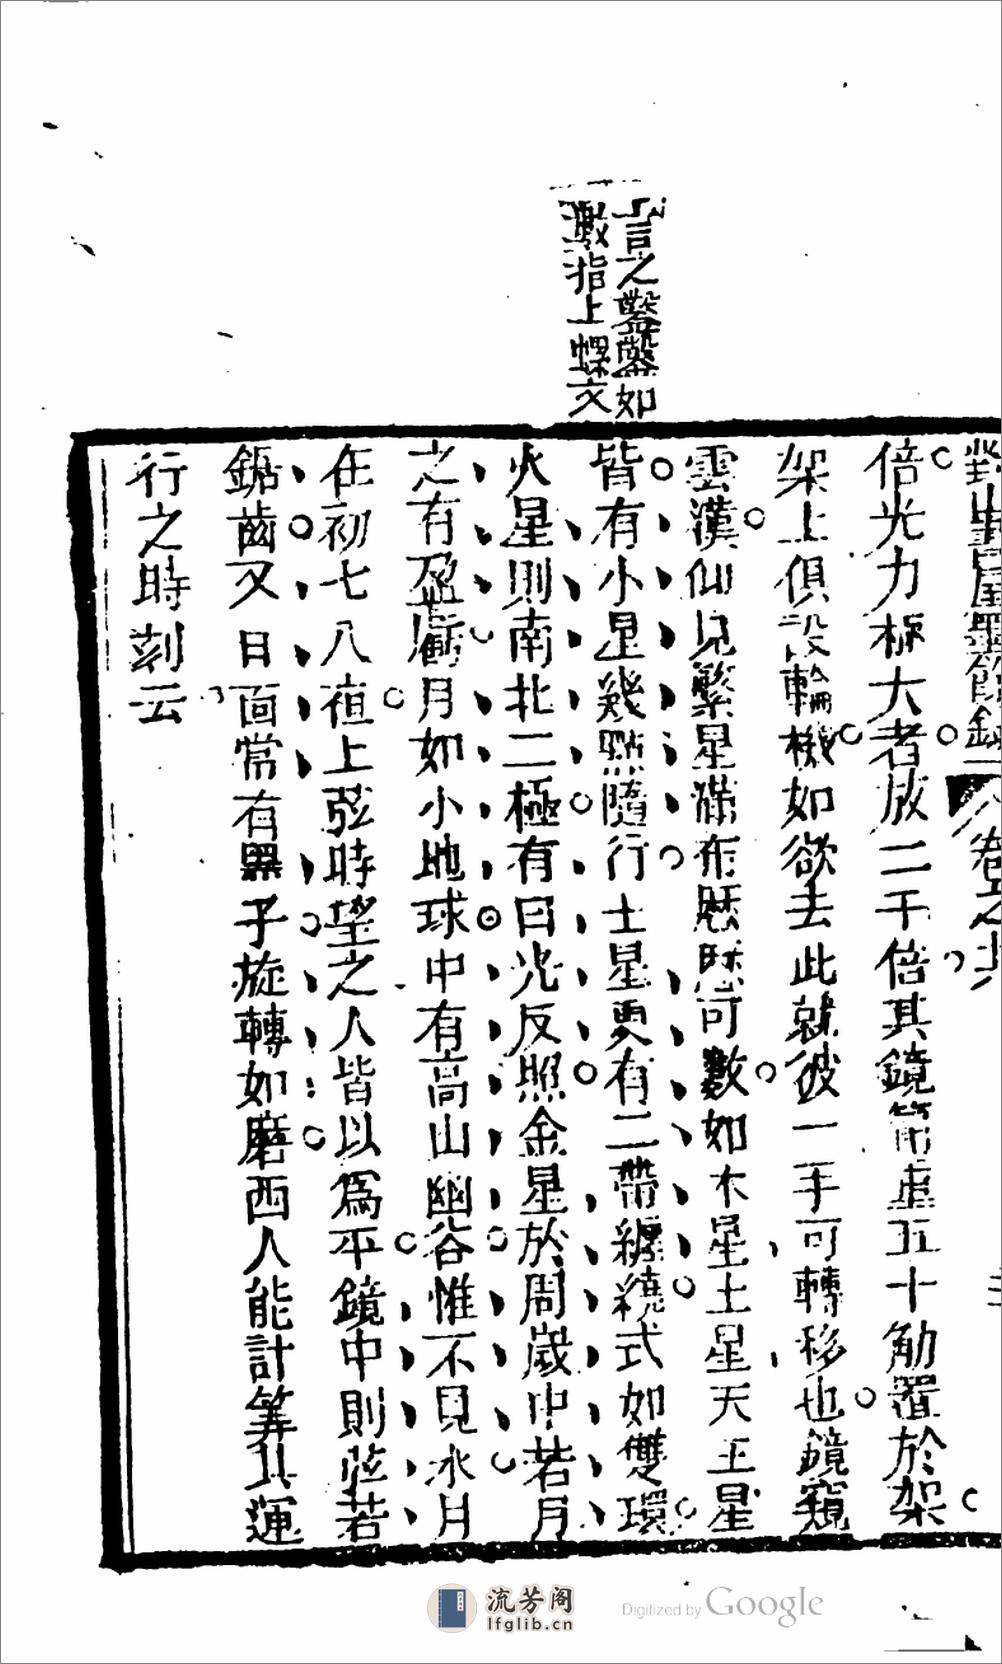 言之鑿鑿如
數指上螺文
對山書屋墨餘錄 卷之
倍光力極大者放二千倍其鏡筩重五十觔置於架
架上俱設輪機如欲去此就彼一手可轉移也鏡窺
雲漢仰見繁星滿布歷歷可數如木星土星天王星
皆有小星幾點隨行土星更有二帶纏繞式如雙環
火星則南北二極有日光反照金星於周歲中若月
之有盈虧月如小地球中有高山幽谷惟不見水月
在初七八夜上弦時望之人皆以為平鏡中則弦若
鋸齒又日面常有黑子旋轉如磨西人能計算其運
行之時刻云
流芳阁
lfglib.cn
Digitized by Google